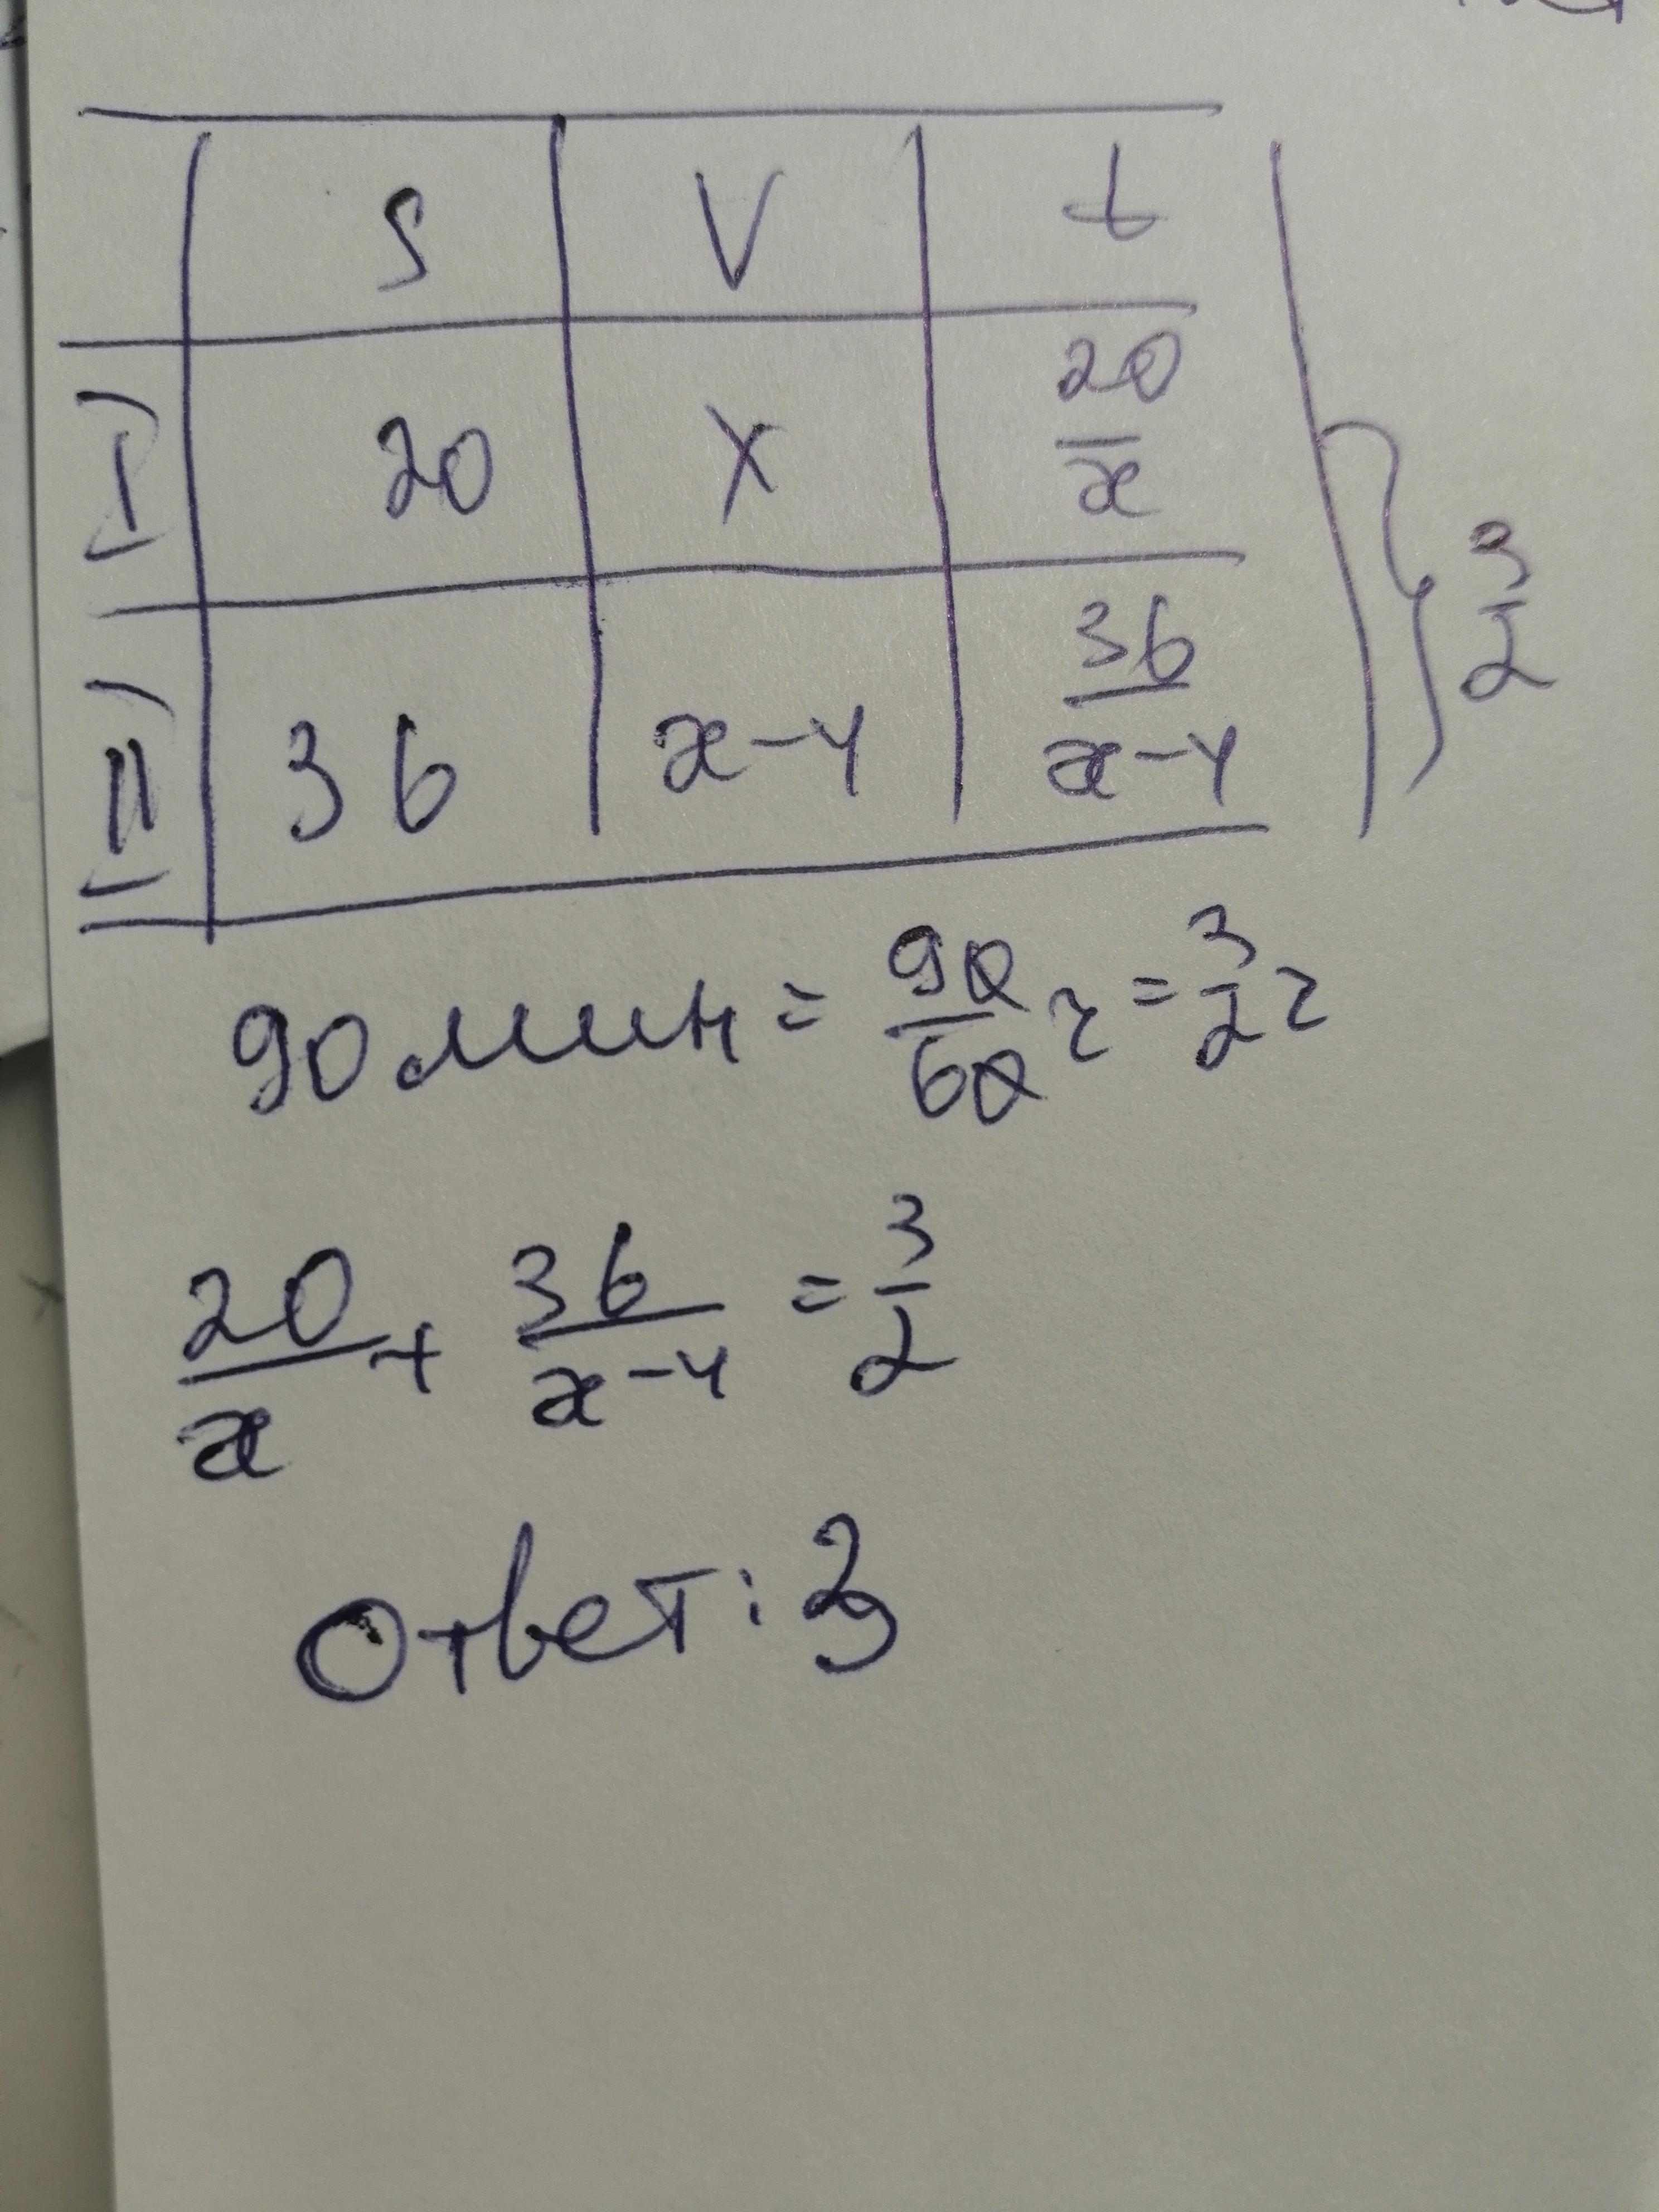 S V t
I) 20 x 20/x
II) 36 x-4 36/x-4 } 3/2
90 мин = 90/60 г = 3/2 г
20/x + 36/x-4 = 3/2
Ответ: 3